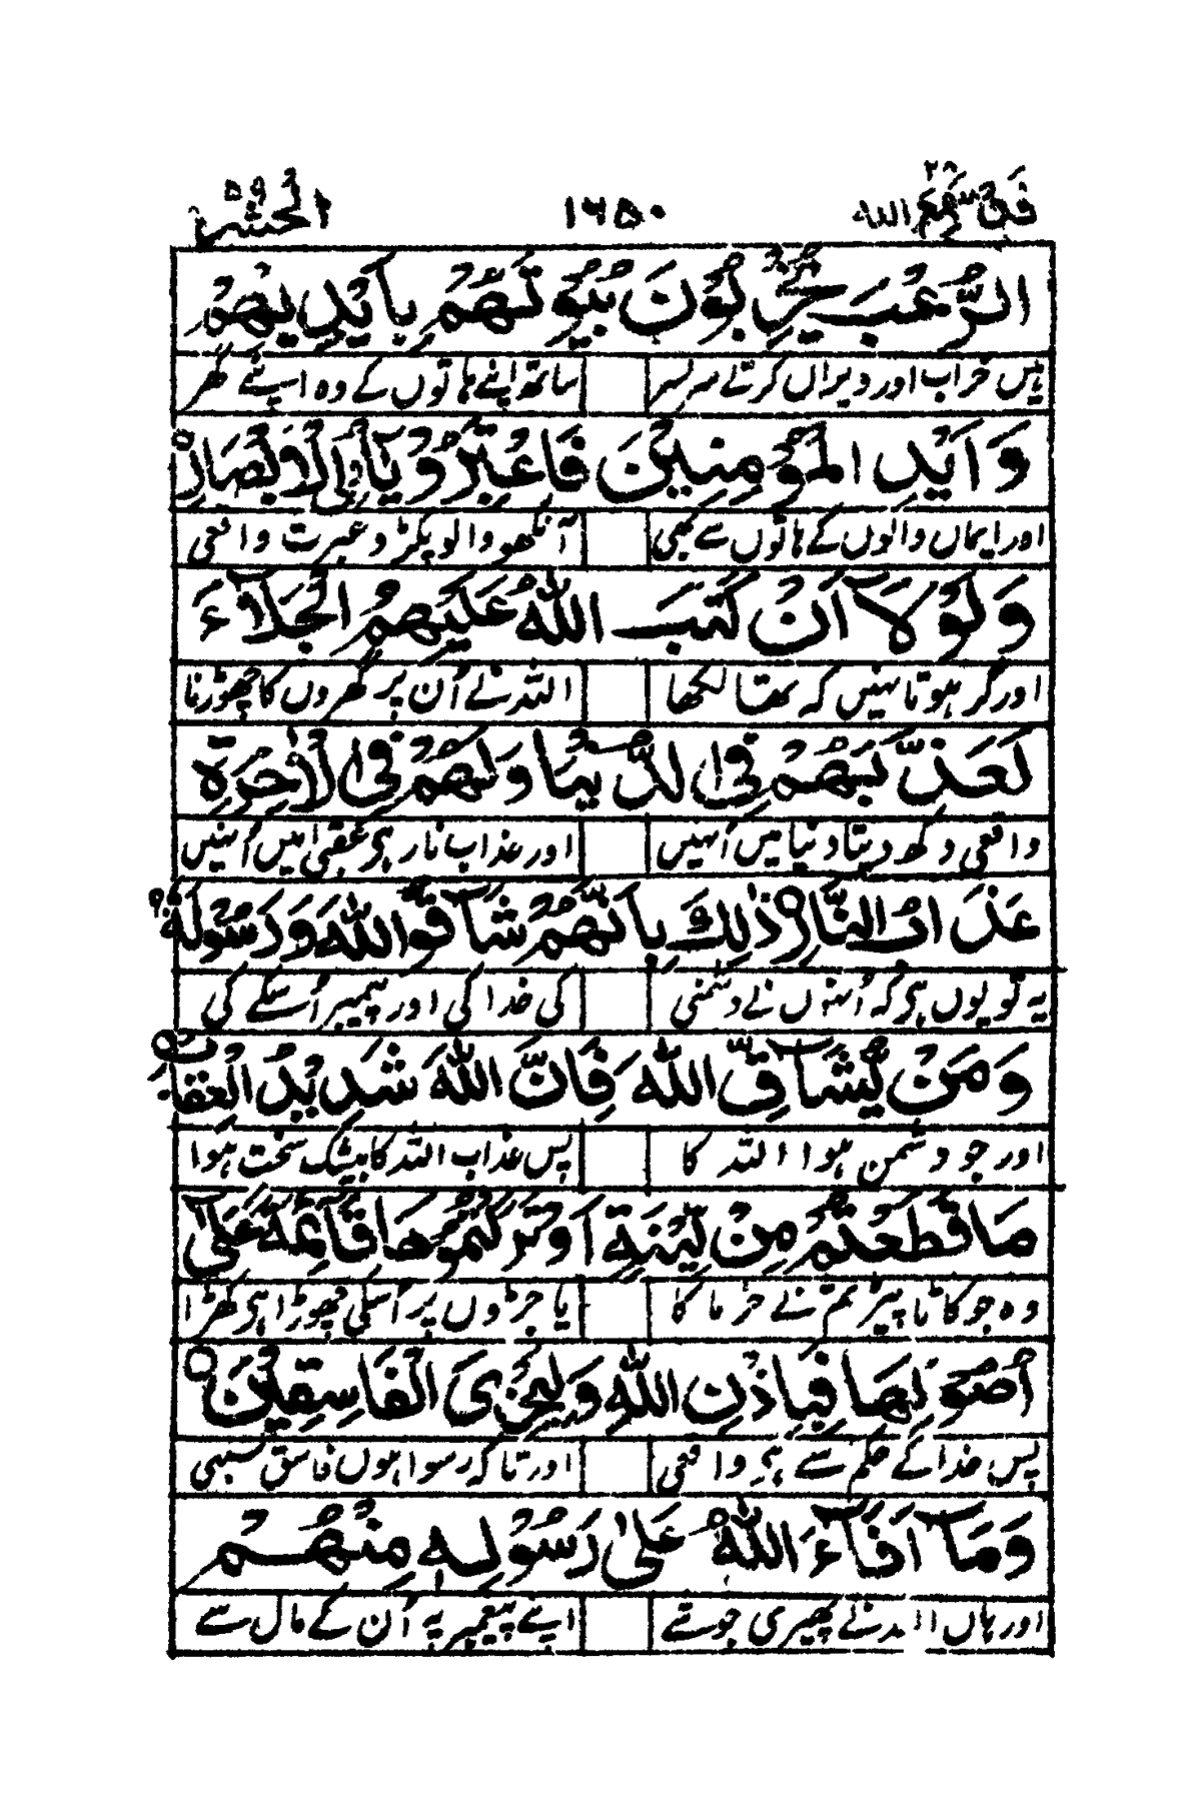 قد سمع الله ٢٨ ١٦٥٠ الحشر ٥٩
الرُّعْبَ يُخْرِبُوْنَ بُيُوْتَهُمْ بِاَيْدِيْهِمْ
ہیں خراب اور ویراں کرتے سر بسر ساتھ اپنے ہاتوں کے وہ اپنے گھر
وَاَيْدِى الْمُؤْمِنِيْنَ فَاعْتَبِرُوْا يٰٓاُولِى الْاَبْصَارِ
اور ایماں والوں کے ہاتوں سے بھی آنکھو والو پکڑو عبرت واقعی
وَلَوْلَآ اَنْ كَتَبَ اللّٰهُ عَلَيْهِمُ الْجَلَآءَ
اور گر ہوتا نہیں کہ تھا لکھا اللہ نے اُن پر گھروں کا چھوڑنا
لَعَذَّبَهُمْ فِى الدُّنْيَا وَلَهُمْ فِى الْاٰخِرَةِ
واقعی دکھ دیتا دنیا میں اُنہیں اور عذاب نار ہے عقبیٰ میں اُنہیں
عَذَابُ النَّارِ ذٰلِكَ بِاَنَّهُمْ شَآقُّوا اللّٰهَ وَرَسُوْلَهٗ
یہ تو یوں ہے کہ اُنہوں نے دشمنی کی خدا کی اور پیمبر اُسکے کی
وَمَنْ يُّشَآقِّ اللّٰهَ فَاِنَّ اللّٰهَ شَدِيْدُ الْعِقَابِ
اور جو دشمن ہوا اللہ کا پس عذاب اللہ کا بیشک سخت ہوا
مَا قَطَعْتُمْ مِنْ لِّيْنَةٍ اَوْ تَرَكْتُمُوْهَا قَآئِمَةً عَلٰٓى
وہ جو کاٹا پیڑ تم نے خرما کا یا جڑوں پر اُسکی چھوڑا ہے کھڑا
اُصُوْلِهَا فَبِاِذْنِ اللّٰهِ وَلِيُخْزِىَ الْفَاسِقِيْنَ
پس خدا کے حکم سے ہے واقعی اور تاکہ رسوا ہوں فاسق سبھی
وَمَآ اَفَآءَ اللّٰهُ عَلٰى رَسُوْلِهٖ مِنْهُمْ
اور ہاں اللہ نے پھیری جو شے اپنے پیغمبر پہ اُن کے مال سے